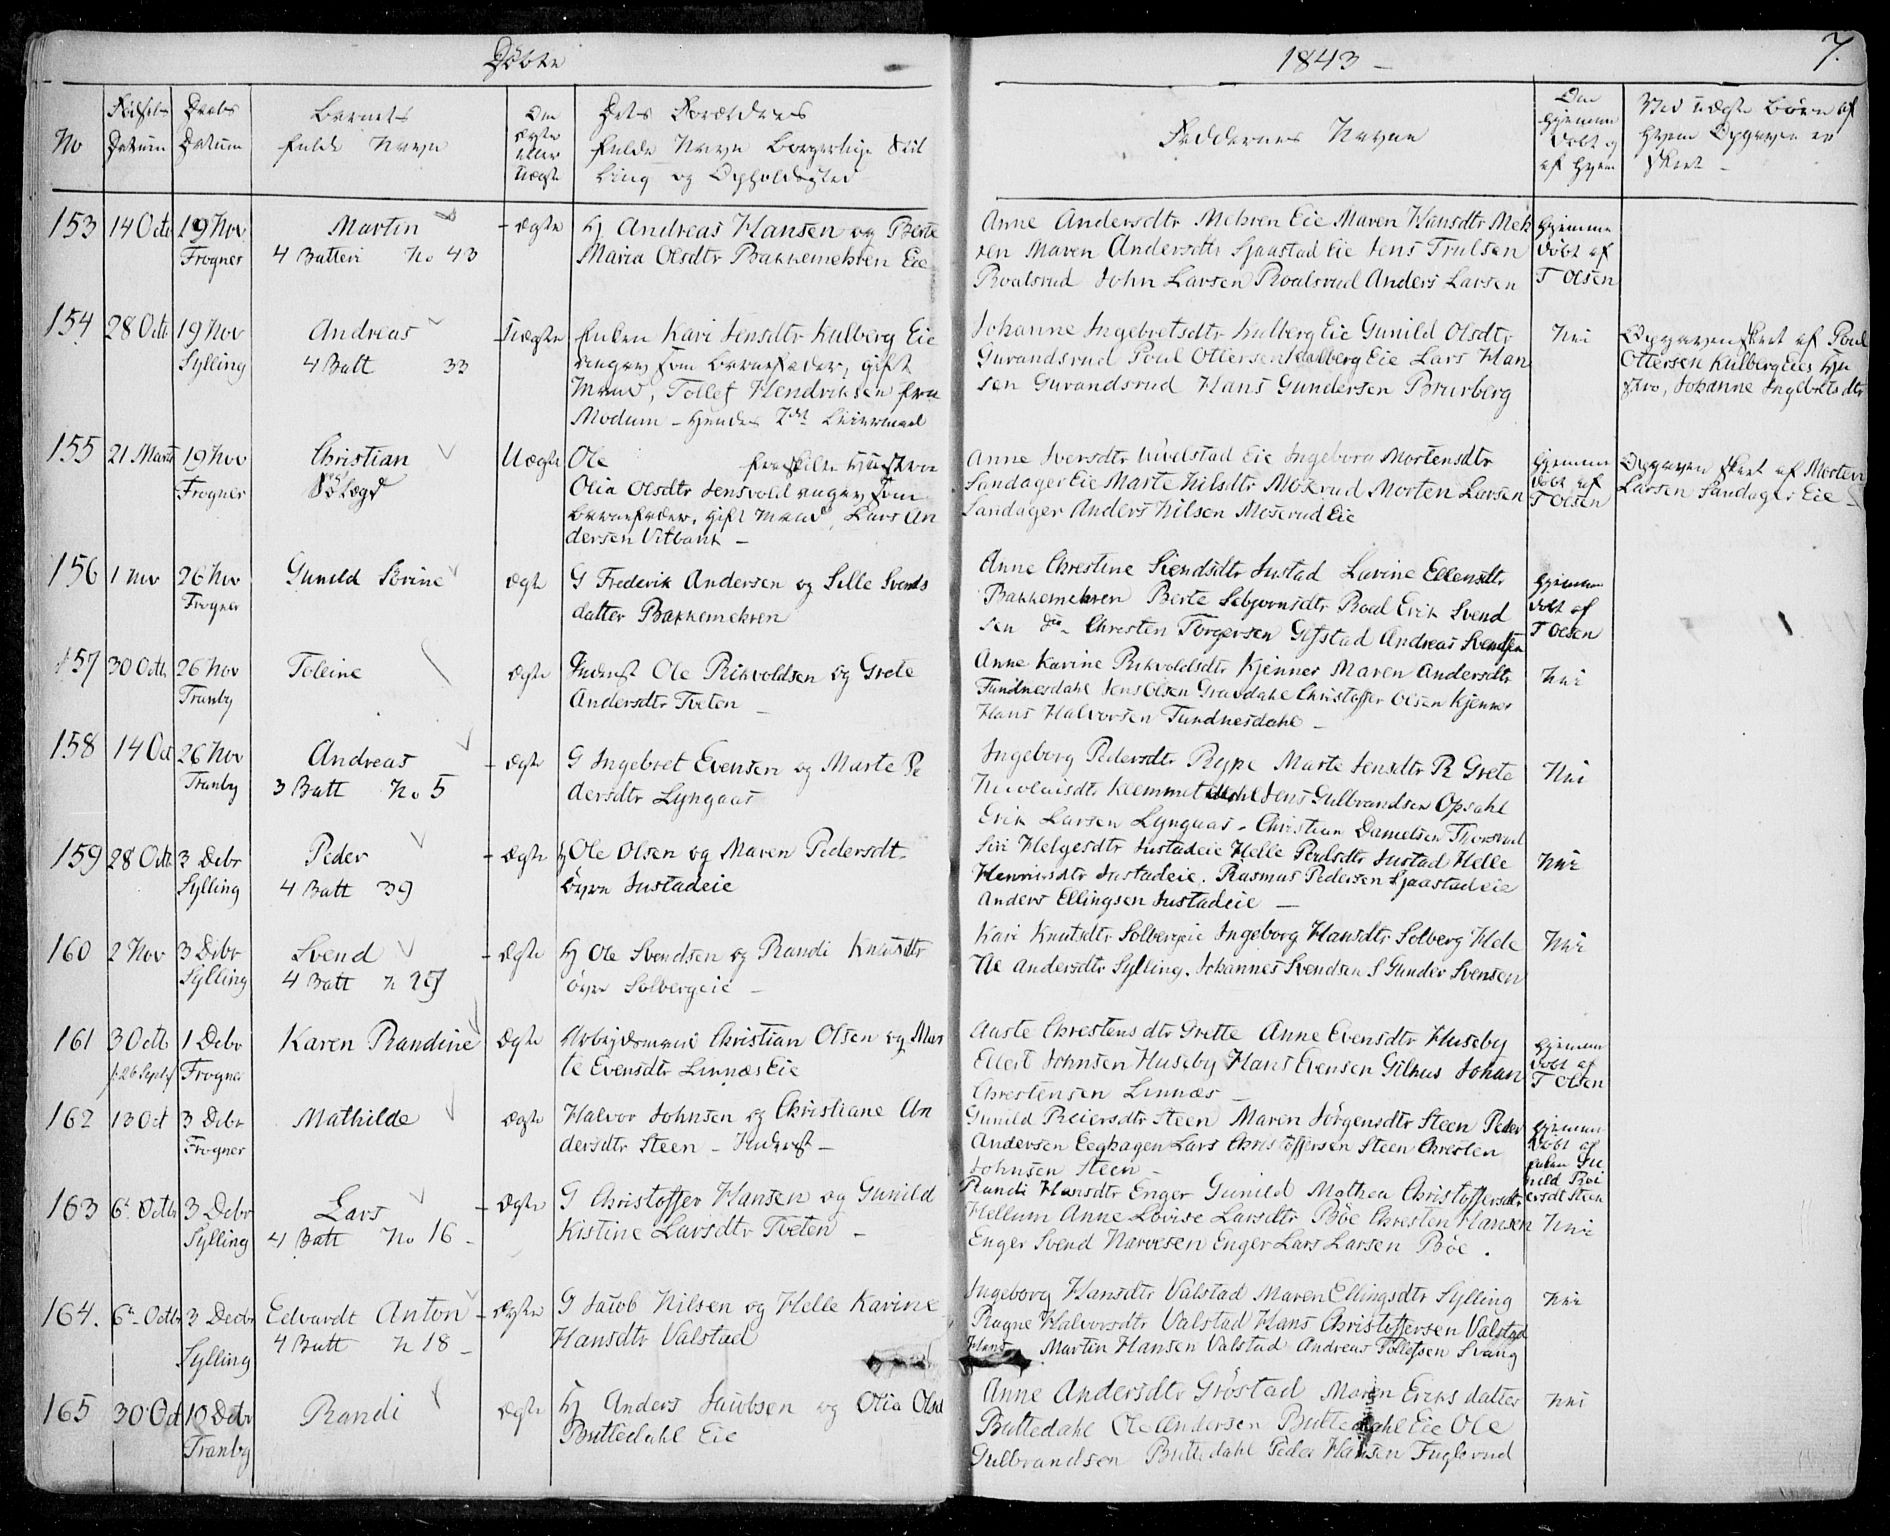 Döbte
1843 -
7.
No
Födsels Datum
Daabs Datum
Barnets fulde Navn
Om ægte eller uægte
Dets Forældres fulde Navn Borgerlige Stilling og Opholdssted
Faddernes Navne
Om hjemmedöbt og af hvem
Ved uægte Börn af hvem Opgaven er skeet -
153 14 Octr 19 Nov Martin - Ægte Hj Andreas Hansen og Berte
Frogner 4 Batteri No 43 Maria Olsdtr Bakkemehren Eie
Anne Andersdtr Mehren Eie Maren Hansdtr Meh
ren Maren Andersdtr Sjaastad Eie Jens Trulsen
Roalsrud John Larsen Roalsrud Anders Larsen
Hjemme döbt af T Olsen
154 28 Octr 19 Nov Andreas Uægte Enken Kari Jensdtr Kulberg Eie
Sylling 4 Batt 33 angav som Barnefader, gift
Mand, Tollef Hendriksen fra
Modum - Hendes 2det Leiermaal
Johanne Ingebretsdtr Kulberg Eie Gunild Olsdtr
Gurandsrud Poul Ottersen Kulberg Eie Lars Han
sen Gurandsrud Hans Gundersen Brurberg
Nei
Opgaven skeet af Poul
Ottersen Kulberg Eies Hu
stro, Johanne Ingebretsdtr
155 21 Marts 19 Nov Christian Uægte Ole fraskilte Hustroe
Frogner Sölægd Olia Olsdtr Jensvold angav som
Barnefader, gift Mand, Lars An
dersen Vitbank -
Anne Iversdtr Uvelstad Eie Ingeborg Mortensdtr
Sandager Eie Marte Nilsdtr Moserud Morten Larsen
Sandager Anders Nilsen Moserud Eie
Hjemme döbt af T Olsen
Opgaven skeet af Morten
Larsen Sandager Eie -
156 1 Nov 26 Nov Gunild Sörine Ægte G Frederik Andersen og Sille Svends
Frogner datter Bakkemehren
Anne Chrestine Svendsdtr Justad Lavine Ellensdtr
Bakkemehren Berte Sebjornsdtr Roal Erik Svend
sen do - Christen Torgersen Gifstad Andreas Svendsen
Hjemme döbt af T Olsen
157 30 Octr 26 Nov Toleine Ægte Inderst Ole Rikvoldsen og Grete
Tranby Andersdtr Tveten -
Anne Karine Rikvoldsdtr Kjenner Maren Andersdtr
Tundnesdahl Jens Olsen Gravdahl Christoffer Olsen Kjenner
Hans Halvorsen Tundnesdahl -
Nei
158 14 Oct 26 Nov Andreas - Ægte G Ingebret Evensen og Marte Pe
Tranby 3 Batt No 5 dersdtr Lyngaas
Ingeborg Pedersdtr Rype Marte Jensdtr R Grete
Nicolaisdtr Klemmetsdahl Jens Gulbrandsen Opsahl
Erik Larsen Lyngaas - Christian Danielsen Thorsrud
Nei
159 28 Octr 3 Debr Peder - Ægte Hj Ole Olsen og Maren Pedersdt.
Sylling 4 Batt 39 Justadeie
Siri Helgesdtr Justadeie Helle Poulsdtr Justad Helle
Henriksdtr Justadeie. Rasmus Pedersen Sjaastadeie
Anders Ellingsen Justadeie -
Nei
160 2 Nov 3 Debr Svend - Ægte Hj Ole Svendsen og Randi Knudsdtr
Sylling 4 Batt N 29 övre Solbergeie -
Kari Knutsdtr Solbergeie Ingeborg Hansdtr Solberg Hele
ne Andersdtr Sylling. Johannes Svendsen S Gunder Svensen
Nei
161 3 Octb 1 Debr Karen Randine Ægte Arbejdsmand Christian Olsen og Mar
f. 26 Septbr Frogner te Evensdtr Linnæs Eie
Aaste Chrestensdtr Grette Anne Evensdtr Huseby
Ellert Johnsen Huseby Hans Evensen Gilhus Johan
Chrestensen Linnæs -
Hjemme döbt af T Olsen
162 13 Oct 3 Debr Mathilde Ægte Halvor Johnsen og Christiane An
Frogner dersdtr Steen - Inderst -
Gunild Reiersdtr Steen Maren Jörgensdtr Steen Peder
Andersen Eeghagen Lars Christoffersen Steen Chresten
Johnsen Steen -
Hjemme döbt af Enken Gunild Reiersdt Steen
163 6t Octbr 3 Debr Lars - Ægte G Christoffer Hansen og Gunild
Sylling 4 Batt No 16 - Kistine Larsdtr Tveten -
Randi Hansdtr Enger Gunild Mathea Christoffersdtr
Hellum Anne Lovise Larsdtr Böe Chresten Hansen
Enger Svend Narvesen Enger Lars Larsen Böe .
Nei
164. 6t Octbr 3 Decbr Edvardt Anton - Ægte G Jacob Nilsen og Helle Karine
Sylling 4 Batt N 18 - Hansdtr Valstad
Ingeborg Hansdtr Valstad Maren Ellingsdtr Sylling
Ragne Halvorsdtr Valstad Hans Christoffersen Valstad
Hans Martin Hansen Valstad Andreas Tollefsen Svang
Nei
165 30 Oct 10 Debr Randi Ægte Hj Anders Jacobsen og Olia Olsd
Tranby Buttedahl Eie
Anne Andersdtr Gröstad Maren Eriksdatter
Buttedahl Ole Andersen Buttedahl Eie Ole
Gulbrandsen Buttedahl Peder Hansen Fuglerud
Nei